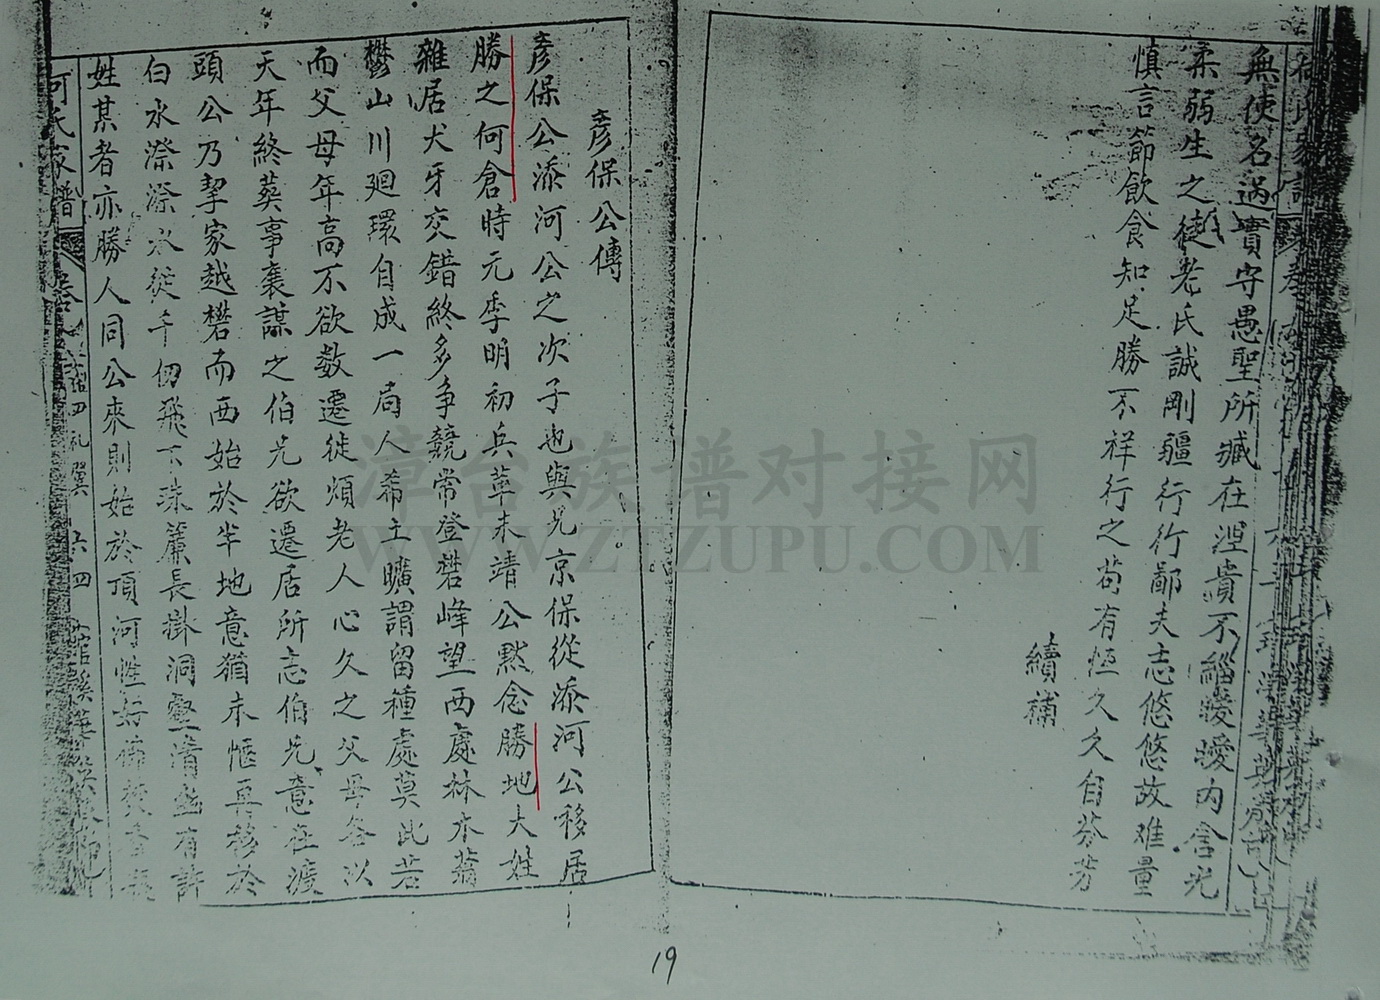 無使名過實守愚聖所臧在涅貴不緇曖曖內含光
柔弱生之徒老氏誡剛疆行行鄙夫志悠悠故难量
慎言節飲食知足勝不祥行之苟有恆久久自芬芳
續補
彥保公傳
彥保公添河公之次子也與兄京保從添河公移居
勝之何倉時元季明初兵革未靖公默念勝地大姓
雜居犬牙交錯終多争競常登礬峰望西處林木蓊
欝山川廻環自成一局人希土曠謂留種處莫此若
而父母年高不欲数遷徙煩老人心久之父母各以
天年終葬事襄謀之伯兄欲遷居所志伯兄意在渡
頭公乃挈家越礬而西始於半地意猶未愜再移於
白水漈漈水從千仞飛下珠簾長掛洞壑清幽有許
姓某者亦勝人同公來則始於頂河性好佛焚香
何氏家譜
漳台族谱对接网
WWW.ZTZUPU.COM
19